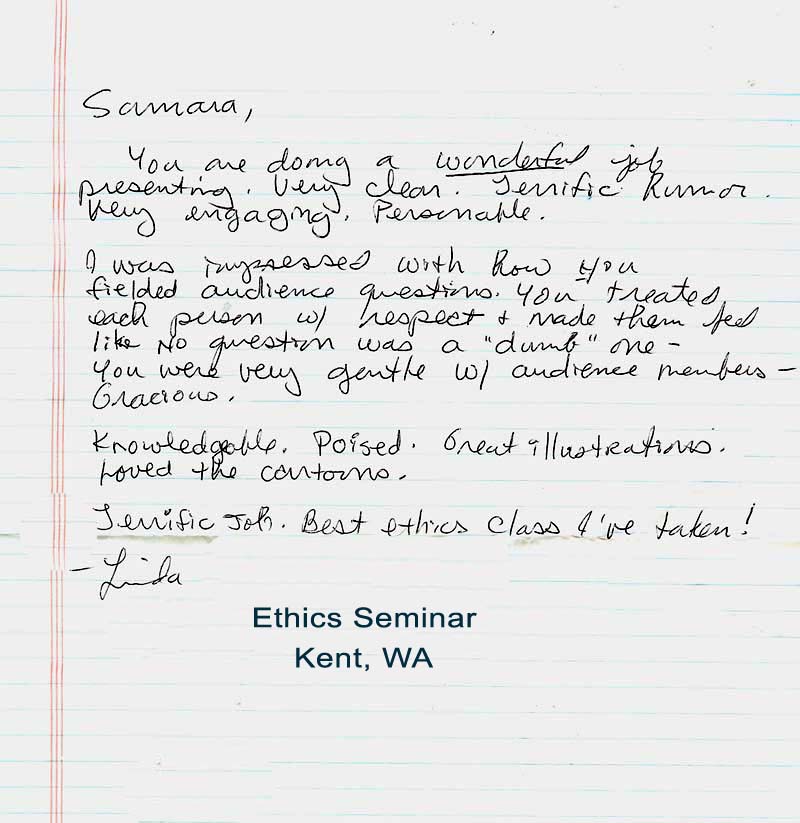 Samara,
You are doing a wonderful job
presenting. Very clear. Terrific humor.
Very engaging. Personable.
I was impressed with how you
fielded audience questions. You treated
each person w/ respect + made them feel
like no question was a "dumb" one -
You were very gentle w/ audience members -
Gracious.
Knowledgable. Poised. Great illustrations.
Loved the cartoons.
Terrific Job. Best ethics class I've taken!
- Linda
Ethics Seminar
Kent, WA